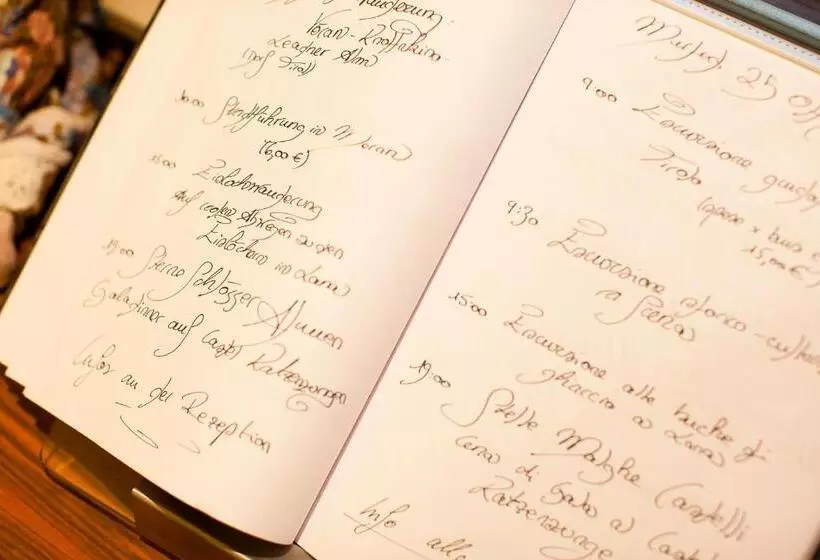 Vöran - Knottnkino
Leadner Alm
(Dorf Tirol)
10:00 Stadtführung in Meran
(6,00 €)
15:00 Eislochwanderung
Auf Abwegen zu den
Eislöchern in Lana
19:00 Sterne Schlösser Almen
Galadinner auf Castel Katzenzungen
Infos an der Rezeption
25
9:00 Escursione
Tirolo
15,00 €)
9:30 Escursione storico-
a Scena
15:00 Escursione alle buche di
ghiaccio a Lana
19:00 Stelle Malghe Castelli
cena di Gala a
Katzenzunge
Info alla